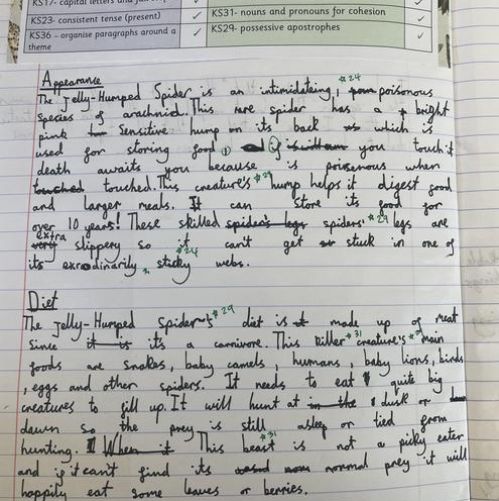 KS17- capital letters and full
KS23- consistent tense (present) ✓
KS31- nouns and pronouns for cohesion ✓
KS36 – organise paragraphs around a theme ✓
KS29- possessive apostrophes ✓
Appearance
The Jelly-Humped Spider is an intimidateing, *24 poisonous
species of arachnid. This rare spider has a bright
pink sensitive hump on its back which is
used for storing food, if you touch it
death awaits you because is poisenous when
touched. This creature's *29 hump helps it digest food
and larger meals. It can store its food for
over 10 years! These skilled spiders' *29 legs are
extra slippery so it can't get stuck in one of
its exrodinarily *24 sticky webs.
Diet
The Jelly-Humped Spider's *29 diet is made up of meat
since it's a carnivore. This killer *31 creature's main
foods are snakes, baby camels, humans, baby lions, birds
, eggs and other spiders. It needs to eat quite big
creatures to fill up. It will hunt at dusk or
dawn so the prey is still asleep or tied from
hunting. This beast *31 is not a picky eater
and if it can't find its normal prey it will
happily eat some leaves or berries.